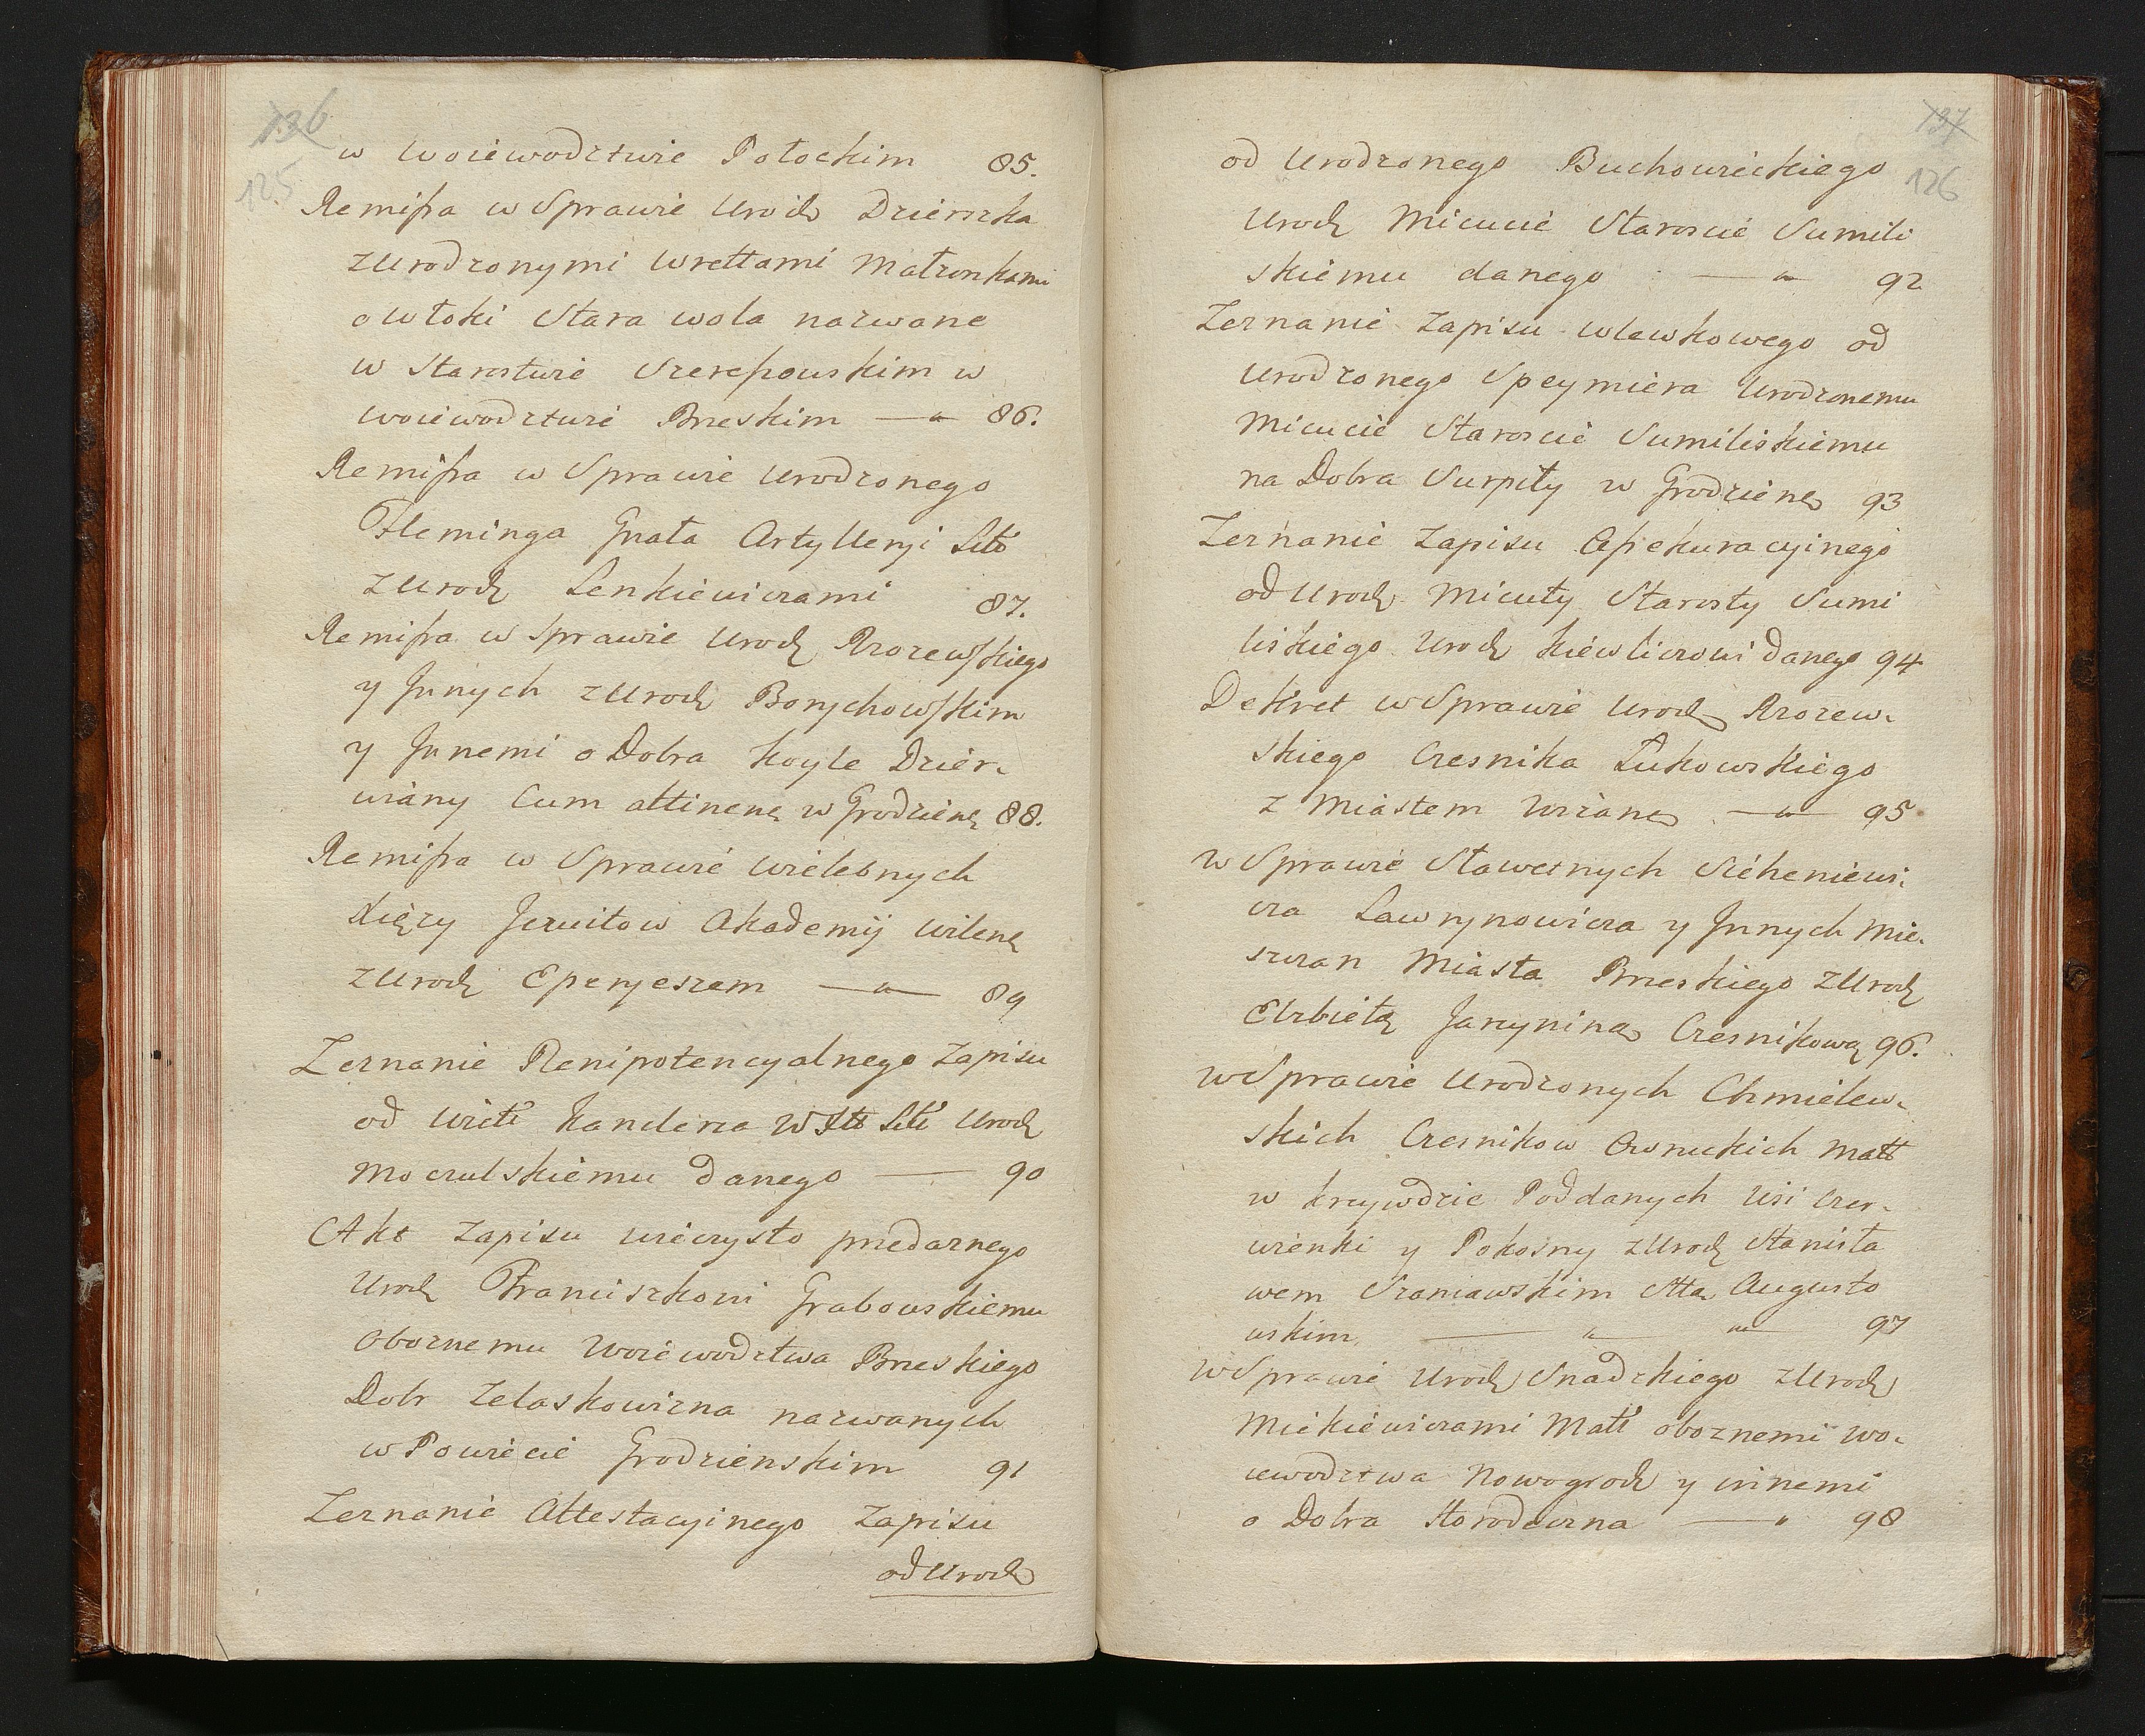 136
125
w Woiewodztwie Połockim 85.
Remissa w Sprawie Urodz Dzierzka
z Urodzonymi Wrettami Małżonkami
o Włoki Stara wola nazwane
w Starostwie Szereszowskim w
Woiewodztwie Brzeskim — " 86.
Remissa w Sprawie Urodzonego
Fleminga Gnała Artylleryi Litō
z Urodz Lenkiewiczami 87.
Remissa w Sprawie Urodz Rrozewskiego
y Jnnych z Urodz Borychowskim
y Jnnemi o Dobra Koyle Dzier-
wiany Cum attinenę w Grodzienę 88.
Remissa w Sprawie Wielebnych
Xięży Jezuitow Akademij Wilenę
z Urodz Eperyeszem — " — 89
Zeznanie Plenipotencyalnego Zapisu
od Wieł Kanclerza W Xtt Litt Urodz
Moczulskiemu danego — 90
Akt Zapisu wieczysto przedaznego
Urodz Franciszkowi Grabowskiemu
Oboznemu Woiewodztwa Brzeskiego
Dobr Zelaskowizna nazwanych
w Powiecie Grodzienskim 91
Zeznanie Attestacyinego Zapisu
od Urodz
137
126
od Urodzonego Buchowieckiego
Urodz Micucie Staroscie Sumili
skiemu danego — " 92
Zeznanie Zapisu wlewkowego od
Urodzonego Speymiera Urodzonemu
Micucie Staroscie Sumiliskiemu
na Dobra Surpiły w Grodzienę 93
Zeznanie Zapisu Assekuracyinego
od Urodz Micuty Starosty Sumi
liskiego Urodz Kiewliczowi danego 94
Dekret w Sprawie Urodz Rrozew-
skiego Czesnika Łukowskiego
z Miastem Wizaną — " — 95.
W Sprawie Sławetnych Siehieniewi-
cza Ławrynowicza y Jnnych Mie-
szczan Miasta Brzeskiego z Urodz
Elzbietą Jarzyniną Czesnikową 96.
W Sprawie Urodzonych Chmielew-
skich Czesnikow Owruckich Małł
w krzywdzie Poddanych Wsi Czer-
wienki y Pokosny z Urodz Stanisła
wem Szaniawskim Stta Augusto
wskim — " " 97
W Sprawie Urodz Snadzkiego z Urodz
Mickiewiczami Małł oboznemi Wo-
iewodztwa Nowogrodz y innemi
o Dobra Horodeczna — " 98